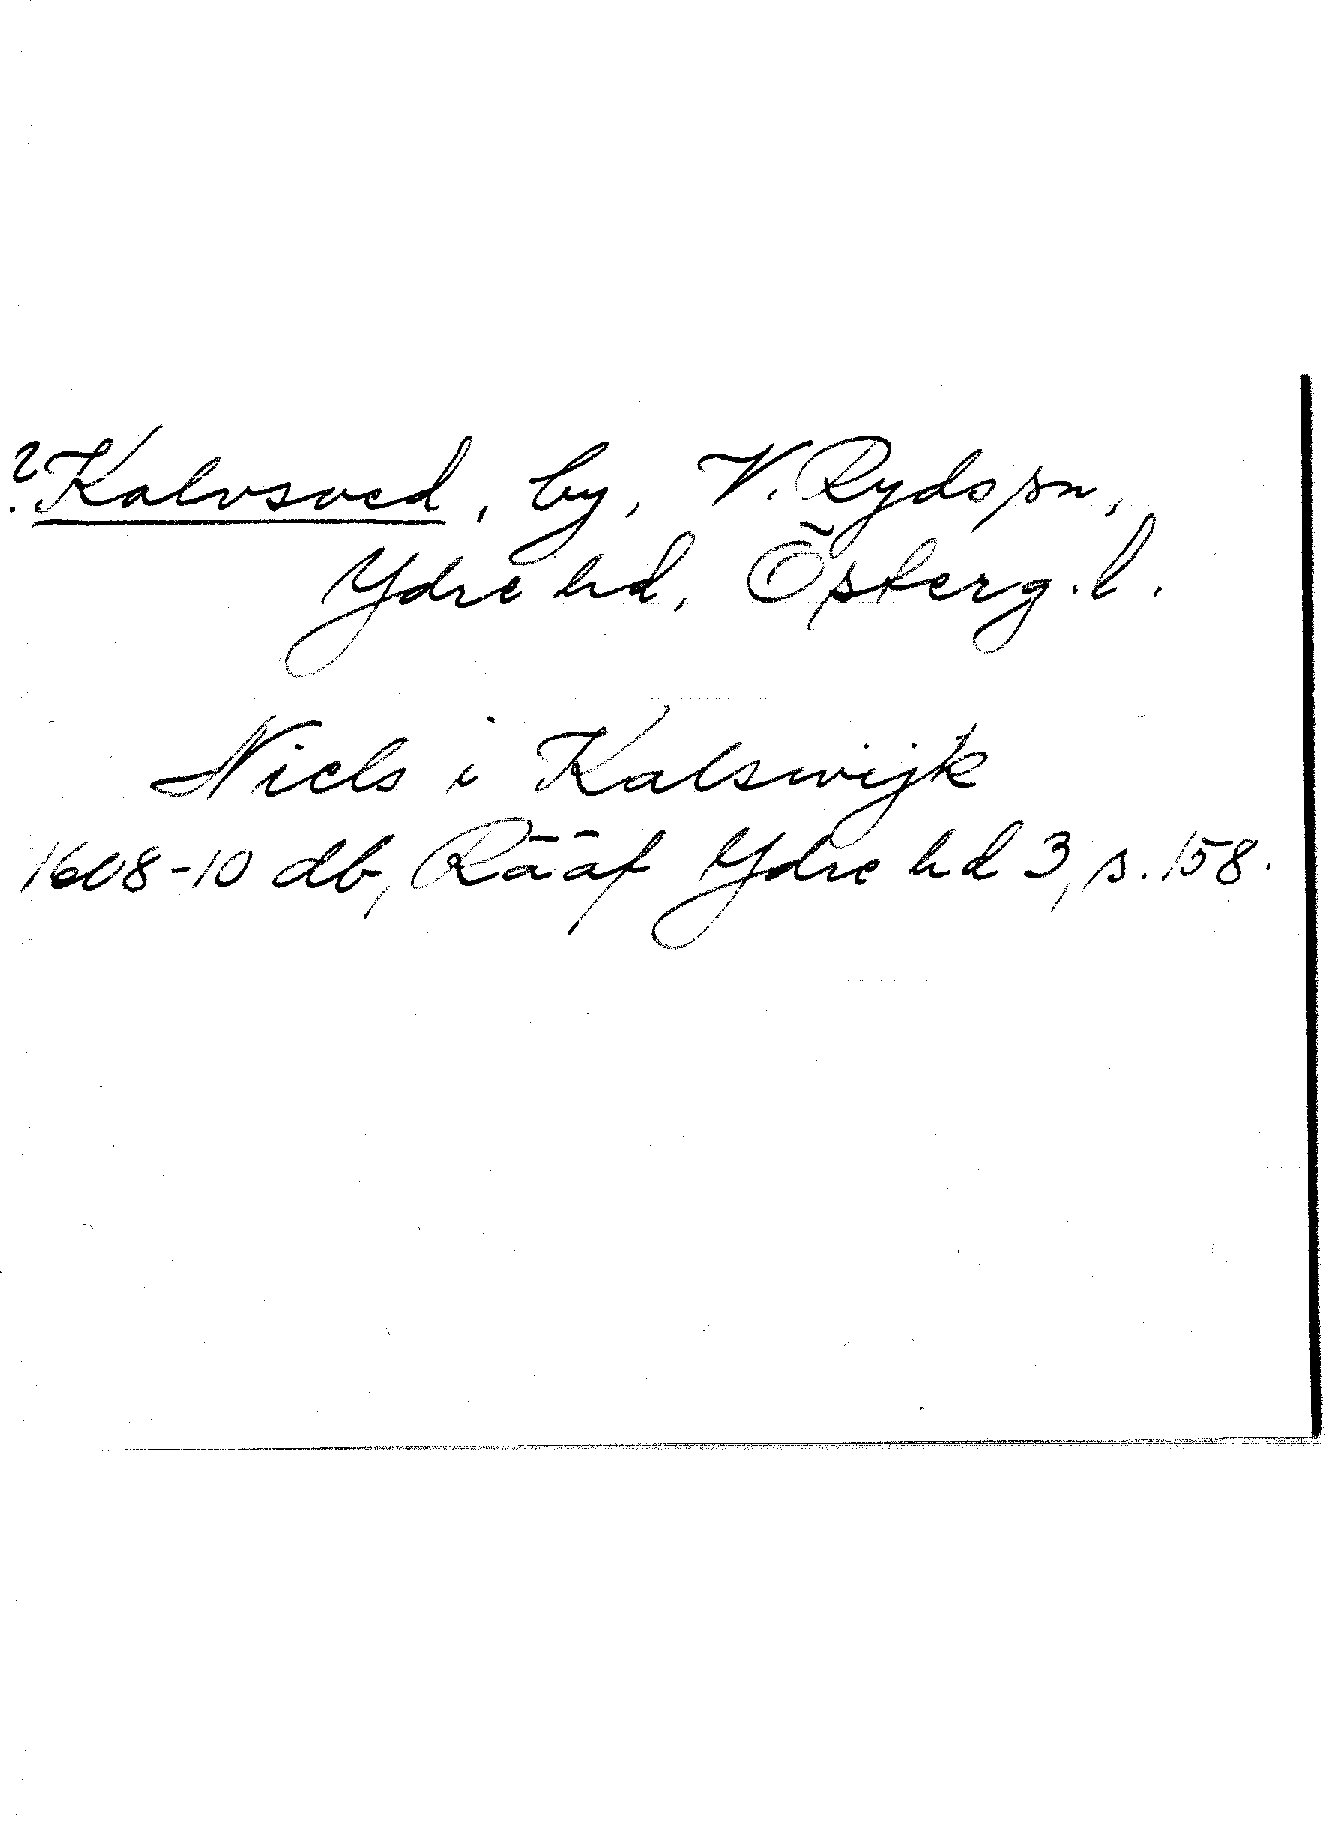 ? Kalvsved, by, V. Ryds sn,
Ydre hd, Österg. l.
Niels i Kalswijk
1608-10 db, Rääf Ydre hd 3, s. 158.